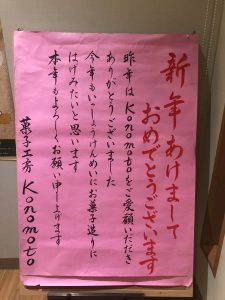 新年あけまして
おめでとうございます
昨年はKonomotoをご愛願いただき
ありがとうございました
今年もいっしょうけんめいにお菓子造りに
はげみたいと思います
本年もよろしくお願い申し上げます
菓子工房 Konomoto